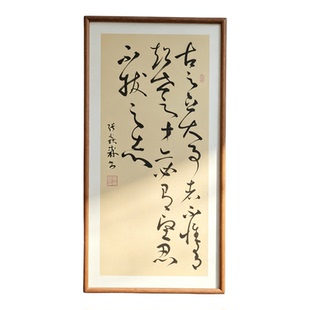 古之立大事者不惟有
超世之才亦必有坚忍
不拔之志